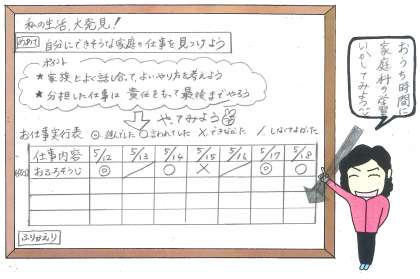 私の生活,大発見!
めあて 自分にできそうな家庭の仕事を見つけよう
ポイント
★家族とよく話し合って,よいやり方を考えよう
★分担した仕事は 責任をもって最後までやろう
やってみよう
お仕事実行表 ◎進んでした ○言われてした ×できなかった /しなくてよかった
仕事内容 5/12 5/13 5/14 5/15 5/16 5/17 5/18
おふろそうじ ◎ / ○ × / ◎ ○
ふりかえり
おうち時間に
家庭科の学習
いかしてみよう